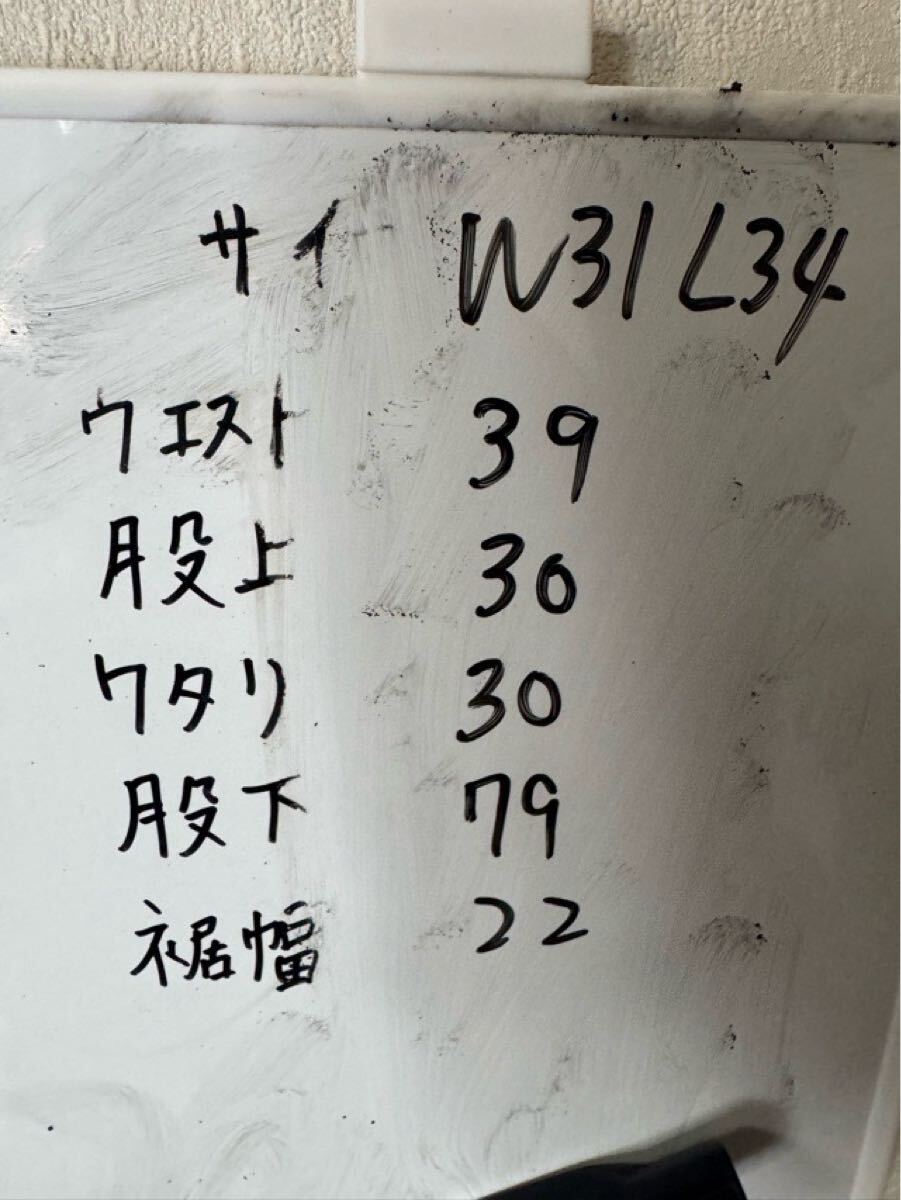 サイ W31 L34
ウエスト 39
股上 30
ワタリ 30
股下 79
裾幅 22